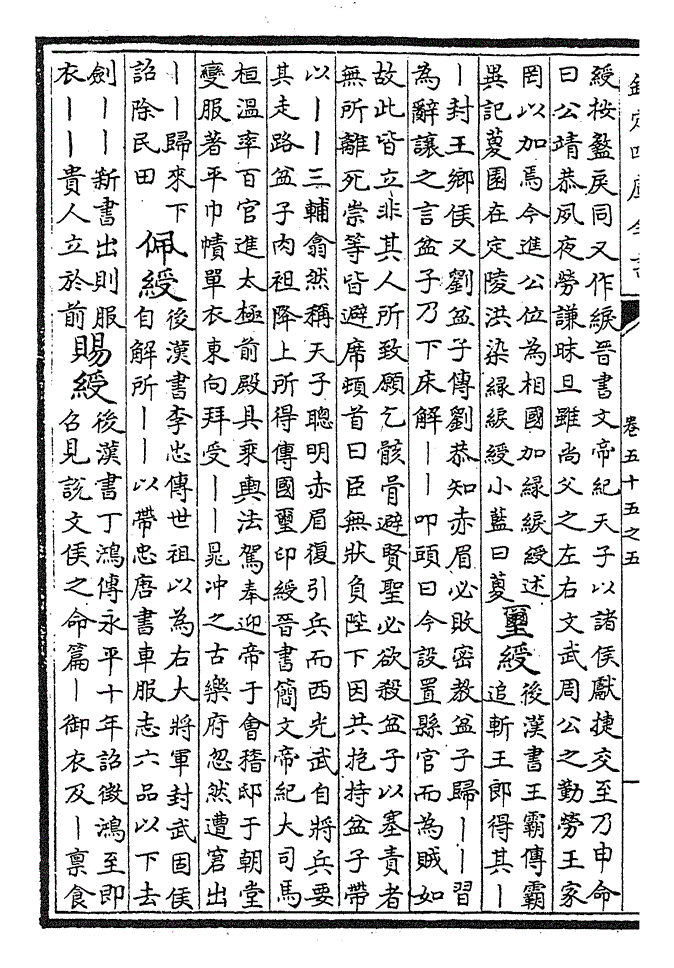 欽定四庫全書
卷五十五之五
綬按盭戾同又作綟晉書文帝紀天子以諸侯獻捷交至乃申命
曰公靖恭夙夜勞謙昧旦雖尚父之左右文武周公之勤勞王家
罔以加焉今進公位為相國加緑綟綬述
異記葼園在定陵洪染緑綟綬小藍曰葼
璽綬
後漢書王霸傳霸
追斬王郎得其｜
｜封王鄉侯又劉盆子傳劉恭知赤眉必敗密教盆子歸｜｜習
為辭讓之言盆子乃下床解｜｜叩頭曰今設置縣官而為賊如
故此皆立非其人所致願乞骸骨避賢聖必欲殺盆子以塞責者
無所離死崇等皆避席頓首曰臣無狀負陛下因共抱持盆子帶
以｜｜三輔翕然稱天子聰明赤眉復引兵而西光武自將兵要
其走路盆子肉袒降上所得傳國璽印綬晉書簡文帝紀大司馬
桓溫率百官進太極前殿具乘輿法駕奉迎帝于會稽邸于朝堂
變服著平巾幘單衣東向拜受｜｜晁冲之古樂府忽然遭窘出
｜｜歸來下
詔除民田
佩綬
後漢書李忠傳世祖以為右大將軍封武固侯
自解所｜｜以帶忠唐書車服志六品以下去
劍｜｜新書出則服
衣｜｜貴人立於前
賜綬
後漢書丁鴻傳永平十年詔徵鴻至即
召見說文侯之命篇｜御衣及｜稟食